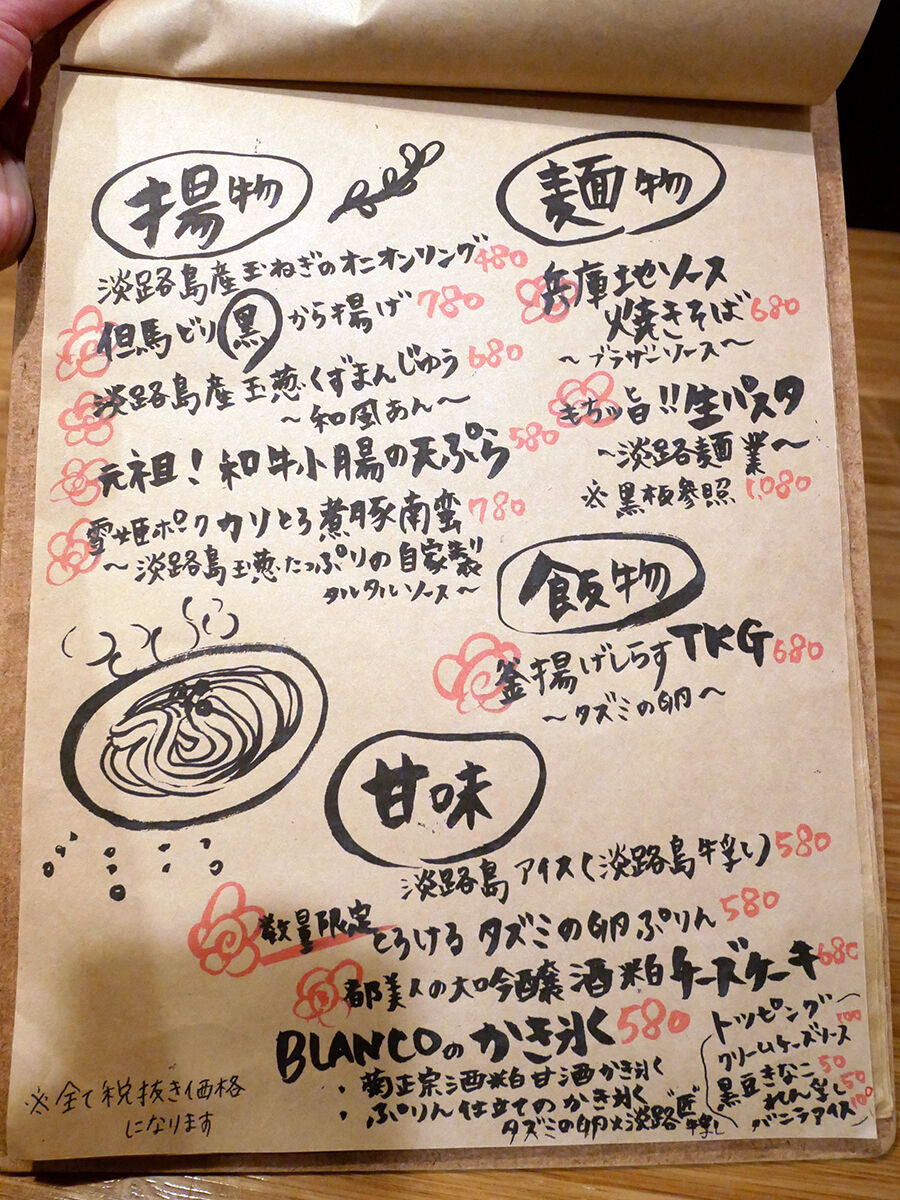 揚物
淡路島産玉ねぎのオニオンリング 480
但馬どり黒から揚げ 780
淡路島産玉葱くずまんじゅう 680
〜和風あん〜
元祖!和牛小腸の天ぷら 580
雪姫ポークカリとろ煮豚南蛮 780
〜淡路島玉葱たっぷりの自家製
タルタルソース〜
麺物
兵庫地ソース
焼きそば 680
〜ブラザーソース〜
もちッと旨!!生パスタ
〜淡路麺業〜
※黒板参照 1,080
飯物
釜揚げしらすTKG 680
〜タズミの卵〜
甘味
淡路島アイス(淡路島牛乳) 580
数量限定 とろけるタズミの卵ぷりん 580
都美人の大吟醸酒粕チーズケーキ 680
BLANCOのかき氷 580
・菊正宗酒粕甘酒かき氷
・ぷりん仕立てのかき氷
タズミの卵×淡路島"匠"牛乳
トッピング〜
クリームチーズソース 100
黒豆きなこ 50
れん乳 50
バニラアイス 100
※全て税抜き価格
になります